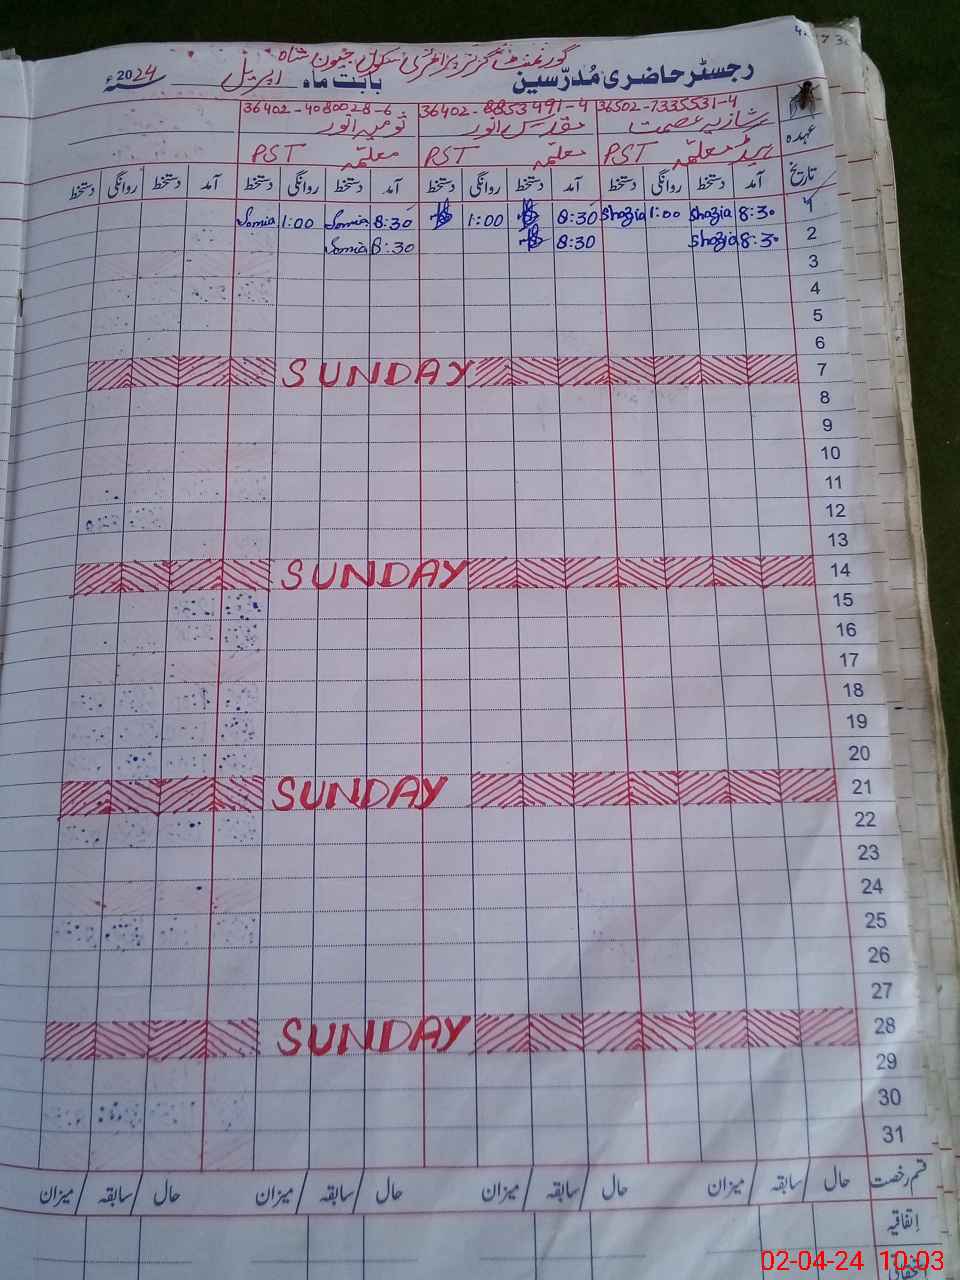 گورنمنٹ گرلز پرائمری سکول جیون شاہ
رجسٹر حاضری مُدرّسین بابت ماہ اپریل 2024ء
36502-7335531-4 36402-8853491-4 36402-4080028-6
عہدہ شازیہ عصمت مقدس انور ثومیہ انور
ہیڈ معلمہ PST معلمہ PST معلمہ PST
تاریخ آمد دستخط روانگی دستخط آمد دستخط روانگی دستخط آمد دستخط روانگی دستخط آمد دستخط روانگی دستخط
1 8:30 Shazia 1:00 Shazia 8:30 1:00 8:30 Somia 1:00 Somia
2 8:30 Shazia 8:30 8:30 Somia
3
4
5
6
7 SUNDAY
8
9
10
11
12
13
14 SUNDAY
15
16
17
18
19
20
21 SUNDAY
22
23
24
25
26
27
28 SUNDAY
29
30
31
قسم رخصت حال سابقہ میزان حال سابقہ میزان حال سابقہ میزان حال سابقہ میزان
اتفاقیہ
02-04-24 10:03